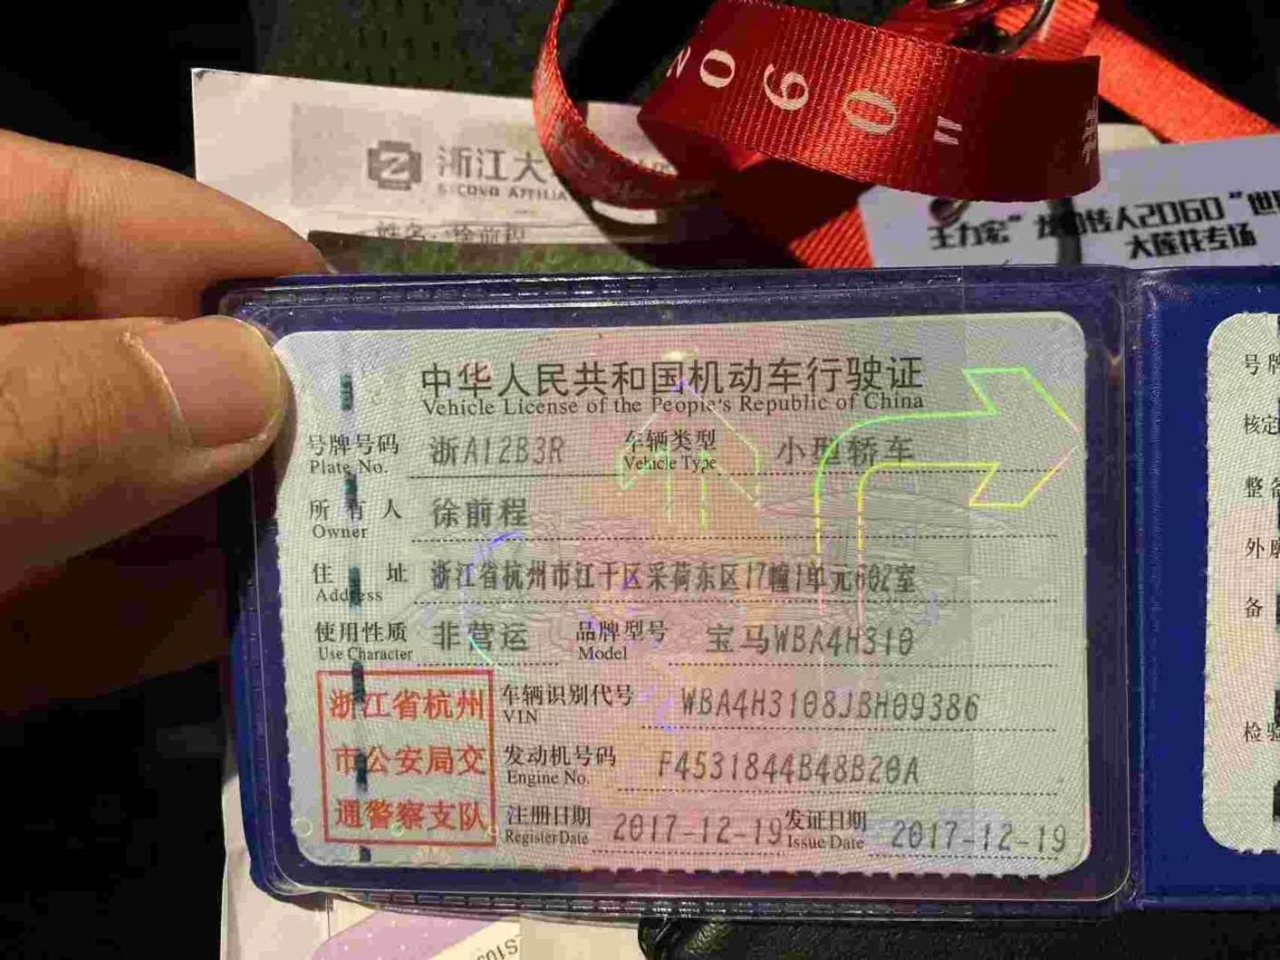 2060"
浙江大
SECOND AFFILIA
姓名: 徐前程
王力宏"龙的传人2060"世
大莲花专场
中华人民共和国机动车行驶证
Vehicle License of the People's Republic of China
号牌号码 浙A12B3R 车辆类型 小型轿车
Plate No. Vehicle Type
所有人 徐前程
Owner
住址 浙江省杭州市江干区采荷东区17幢1单元602室
Address
使用性质 非营运 品牌型号 宝马WBA4H310
Use Character Model
浙江省杭州
市公安局交
通警察支队
车辆识别代号 WBA4H3108JBH09386
VIN
发动机号码 F4531844B48B20A
Engine No.
注册日期 2017-12-19 发证日期 2017-12-19
Register Date Issue Date
号牌
核定
整备
外廓
备
检验